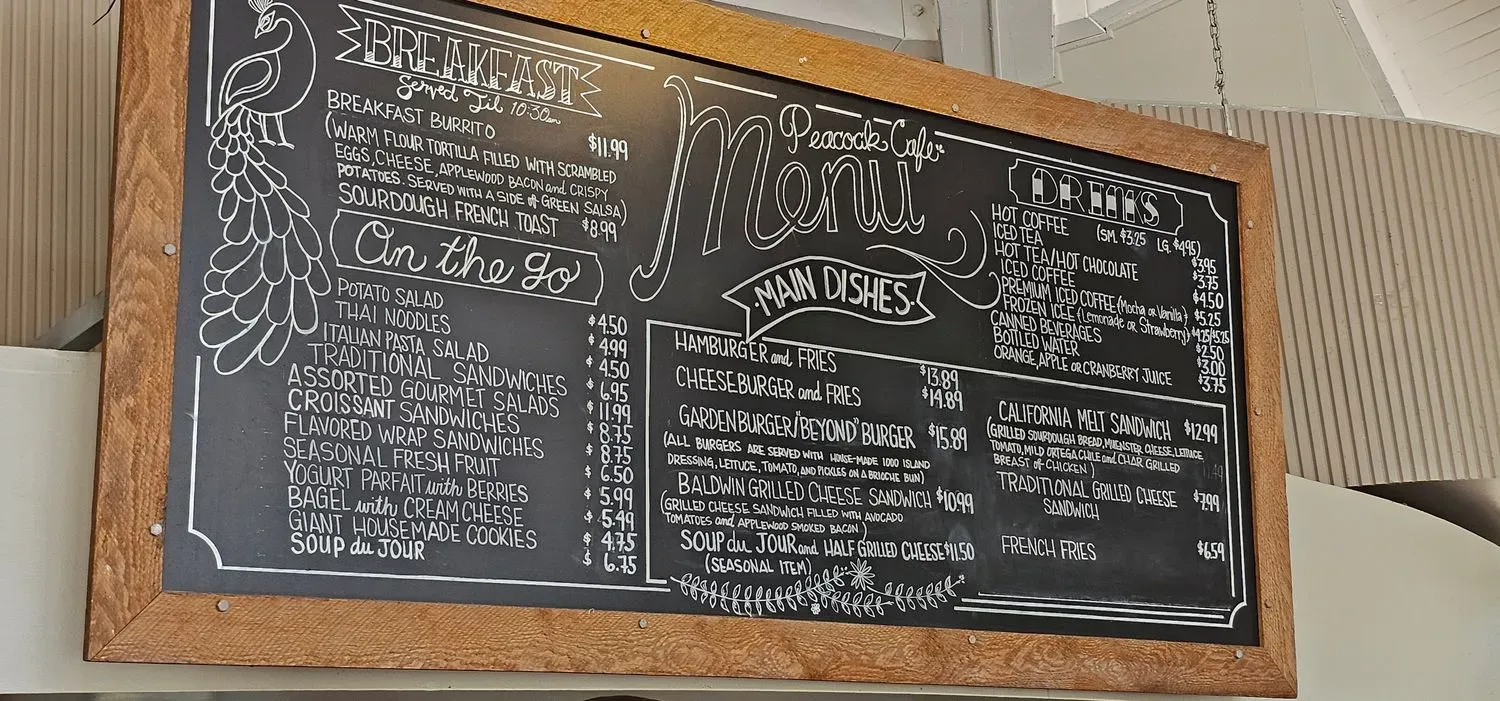 BREAKFAST
Served Til 10:30am
BREAKFAST BURRITO $11.99
(WARM FLOUR TORTILLA FILLED WITH SCRAMBLED
EGGS, CHEESE, APPLEWOOD BACON and CRISPY
POTATOES. SERVED WITH A SIDE of GREEN SALSA)
SOURDOUGH FRENCH TOAST $8.99
On the go
POTATO SALAD $4.50
THAI NOODLES $4.99
ITALIAN PASTA SALAD $4.50
TRADITIONAL SANDWICHES $6.95
ASSORTED GOURMET SALADS $11.99
CROISSANT SANDWICHES $8.75
FLAVORED WRAP SANDWICHES $8.75
SEASONAL FRESH FRUIT $6.50
YOGURT PARFAIT with BERRIES $5.99
BAGEL with CREAM CHEESE $5.49
GIANT HOUSEMADE COOKIES $4.75
SOUP du JOUR $6.75
Peacock Cafe
Menu
MAIN DISHES
HAMBURGER and FRIES $13.89
CHEESEBURGER and FRIES $14.89
GARDENBURGER/"BEYOND" BURGER $15.89
(ALL BURGERS ARE SERVED WITH HOUSE-MADE 1000 ISLAND
DRESSING, LETTUCE, TOMATO, AND PICKLES ON A BRIOCHE BUN)
BALDWIN GRILLED CHEESE SANDWICH $10.99
(GRILLED CHEESE SANDWICH FILLED WITH AVOCADO
TOMATOES and APPLEWOOD SMOKED BACON)
SOUP du JOUR and HALF GRILLED CHEESE $11.50
(SEASONAL ITEM)
DRINKS
HOT COFFEE (SM. $3.25 LG. $4.95)
ICED TEA $3.95
HOT TEA/HOT CHOCOLATE $3.75
ICED COFFEE $4.50
PREMIUM ICED COFFEE (Mocha or Vanilla) $5.25
FROZEN ICEE (Lemonade or Strawberry) $4.25/$5.25
CANNED BEVERAGES $2.50
BOTTLED WATER $3.00
ORANGE, APPLE or CRANBERRY JUICE $3.75
CALIFORNIA MELT SANDWICH $12.99
(GRILLED SOURDOUGH BREAD, MUENSTER CHEESE, LETTUCE
TOMATO, MILD ORTEGA CHILE and CHAR GRILLED
BREAST of CHICKEN)
TRADITIONAL GRILLED CHEESE $7.99
SANDWICH
FRENCH FRIES $6.59